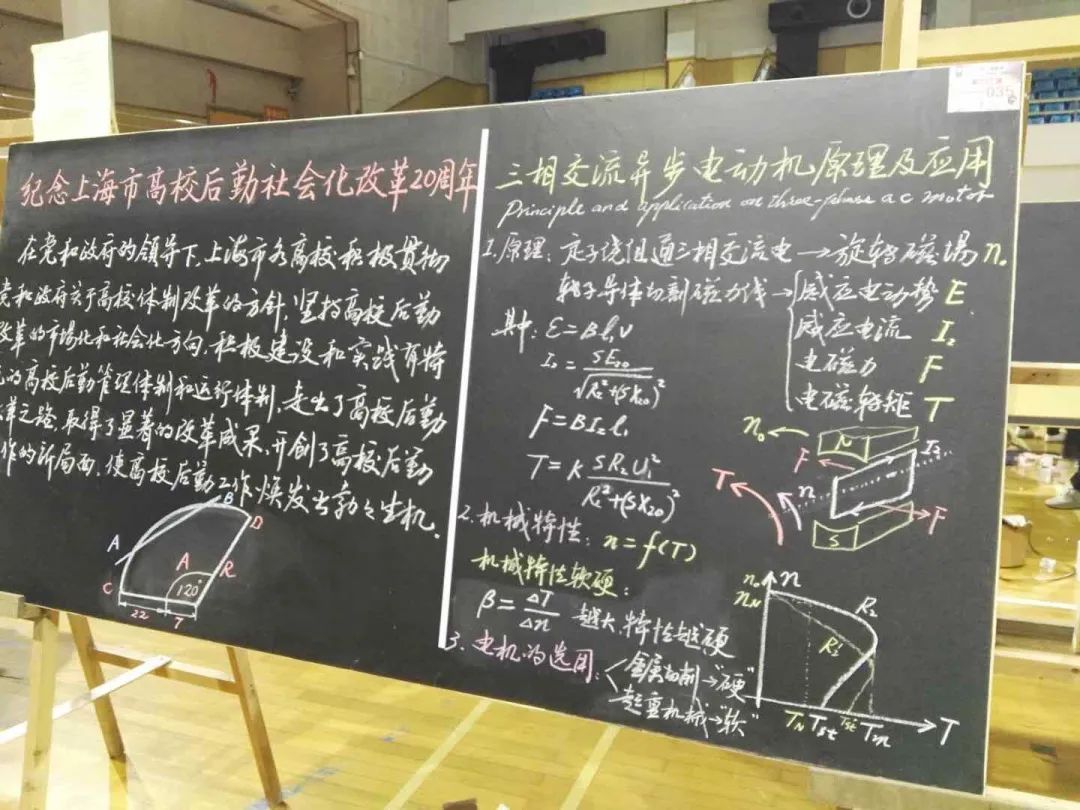 纪念上海市高校后勤社会化改革20周年
在党和政府的领导下,上海市各高校积极贯彻
党和政府关于高校体制改革的方针,坚持高校后勤
改革的市场化和社会化方向,积极建设和实践有特
色的高校后勤管理体制和运行体制,走出了高校后勤
改革之路,取得了显著的改革成果,开创了高校后勤
工作的新局面,使高校后勤工作焕发出勃勃生机.
A
B
D
C
A
R
120°
22
T
035
三相交流异步电动机原理及应用
Principle and application on three-phase ac motor
1.原理:定子绕组通三相交流电→旋转磁场n₀
转子导体切割磁力线→感应电动势 E
感应电流 I₂
电磁力 F
电磁转矩 T
其中:ε=Bl₁v
I₂=SE₂₀/√R₂²+(SX₂₀)²
F=BI₂l₁
T=K SR₂U₁²/R₂²+(SX₂₀)²
n₀
N
I₂
F
n
T
F
S
2.机械特性:n=f(T)
机械特性软硬:
β=ΔT/Δn 越大,特性越硬
3.电机的选用:金属切削→"硬"
起重机械→"软"
n₀
n
nN
R₂
R₂'
TN Tst Tst' Tm T